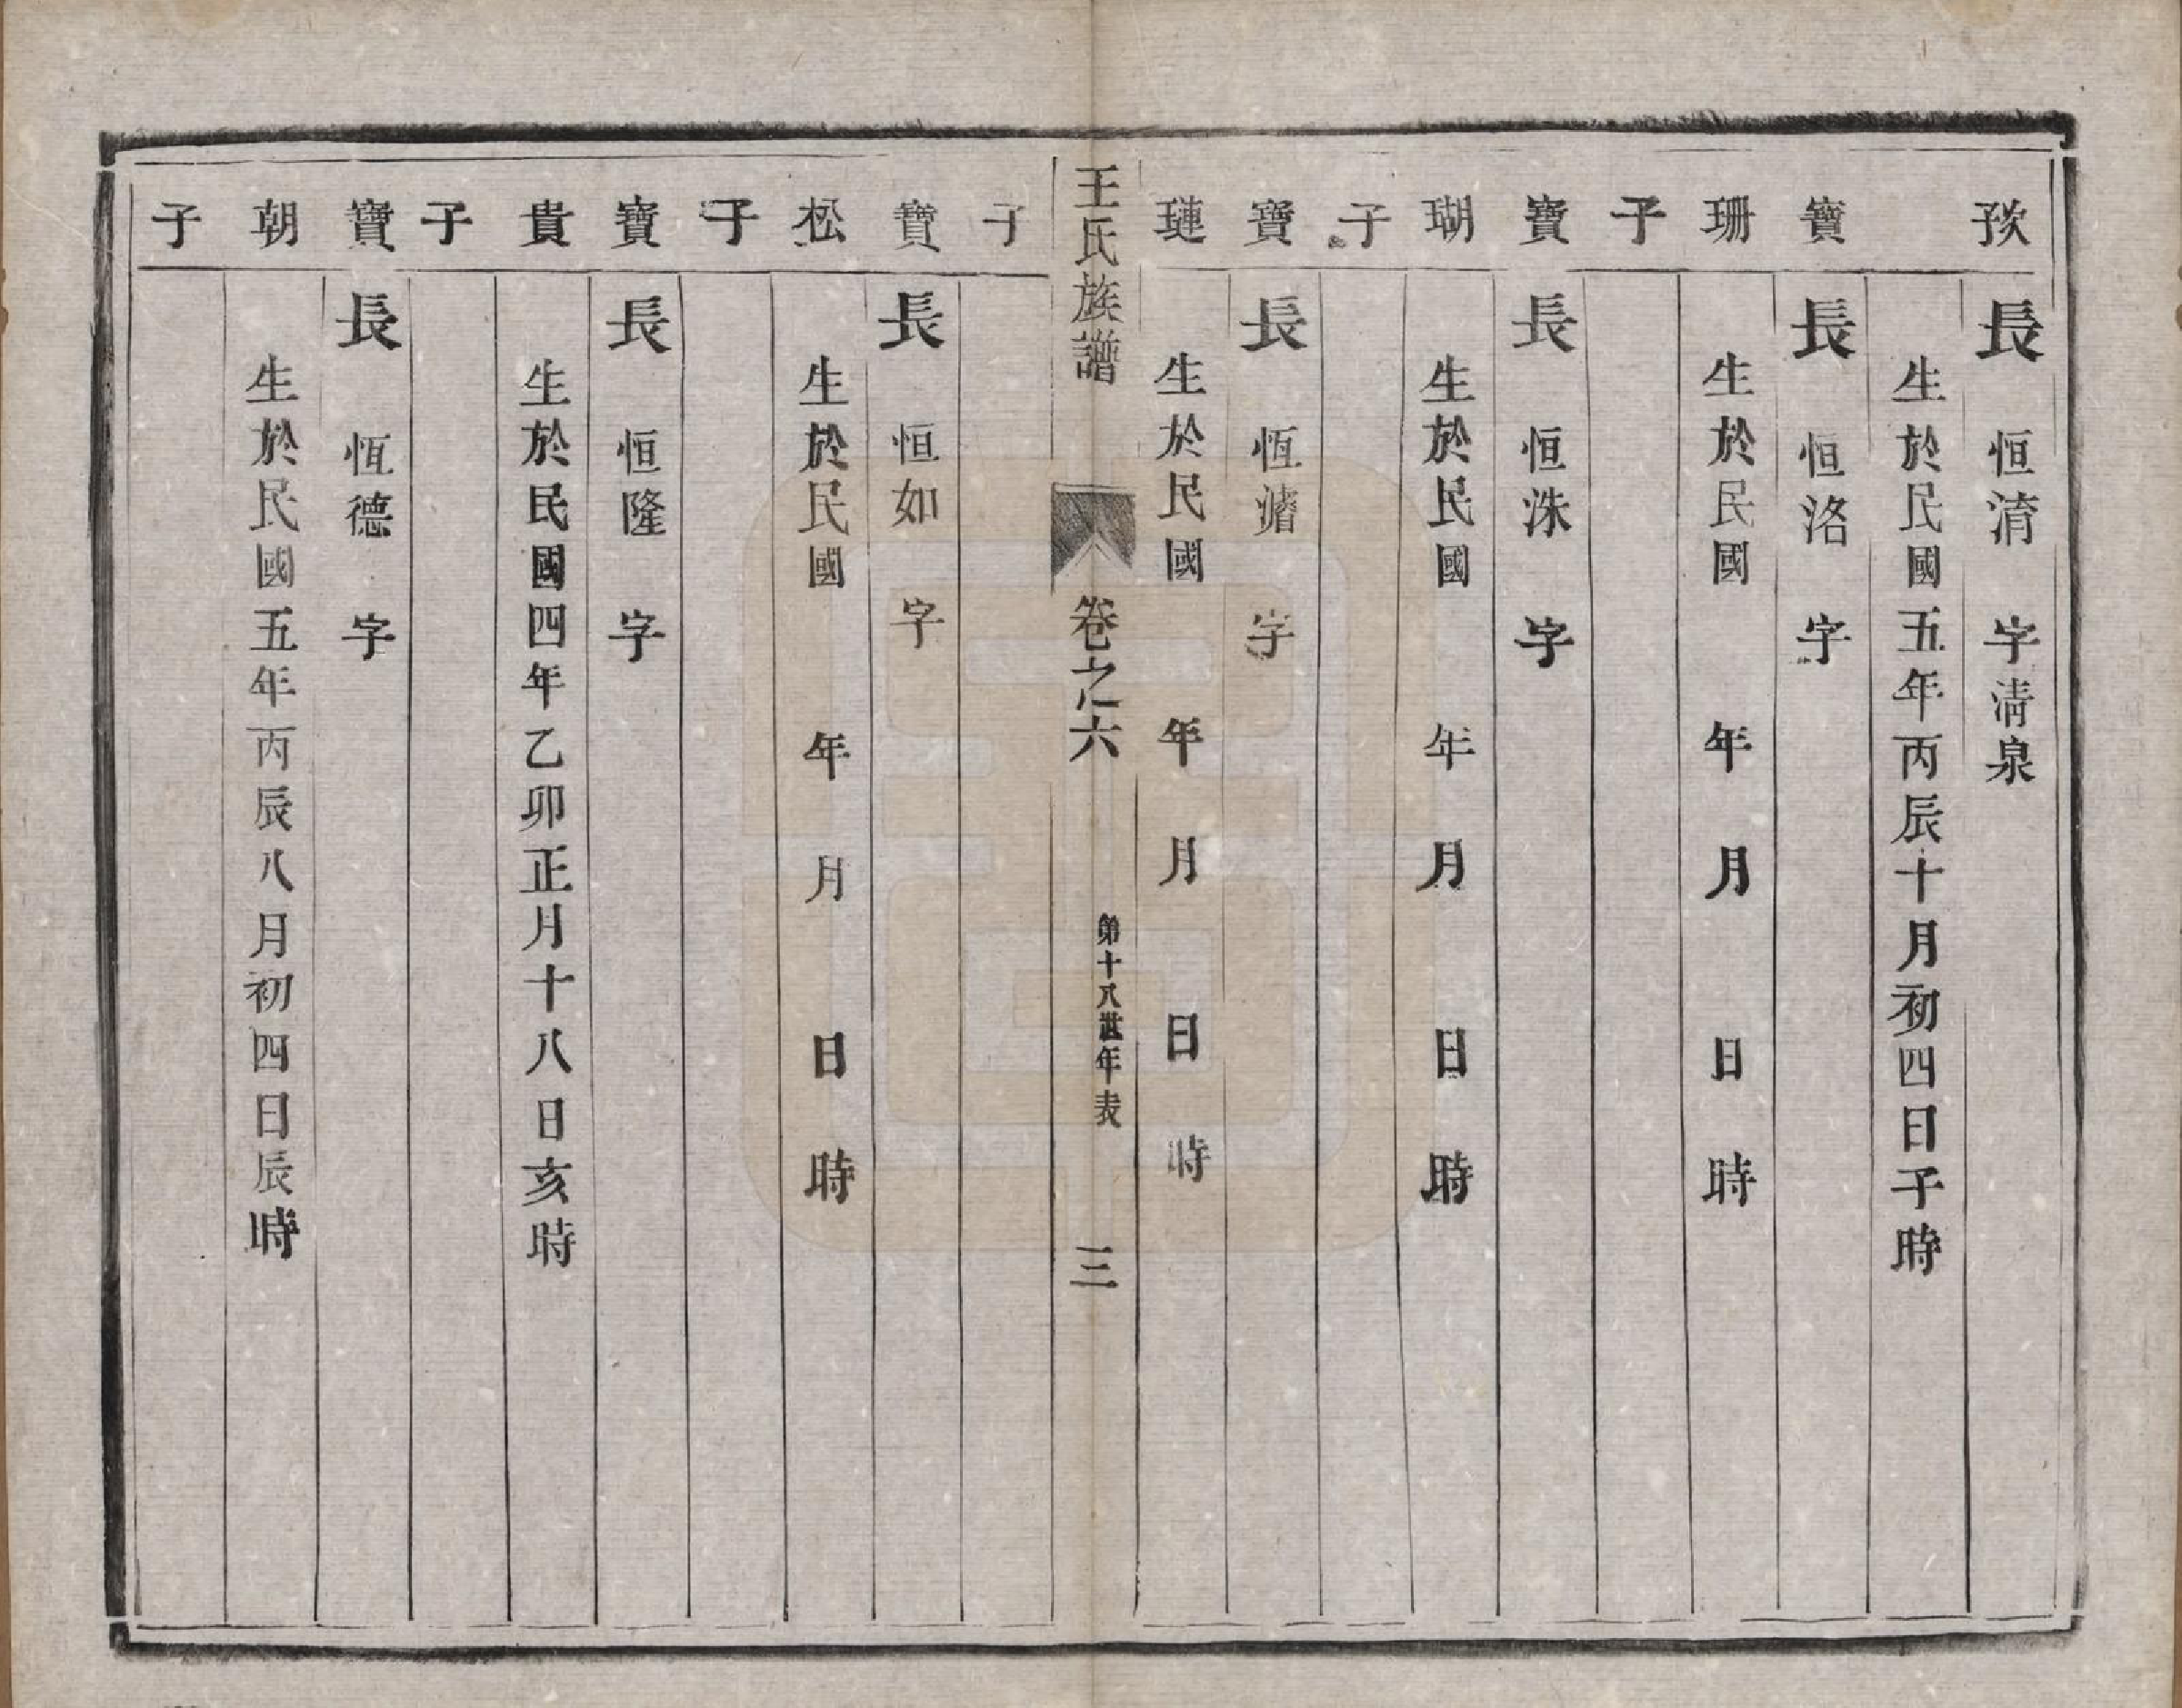 長 恒淯 字清泉
生於民國五年丙辰十月初四日子時
寶 長 恒洛 字
珊 生於民國 年 月 日 時
子
寶 長 恒洙 字
瑚 生於民國 年 月 日 時
子
寶 長 恆 字
璉 生於民國 年 月 日 時
王氏族譜 卷之六 第十八世年表 三
子
寶 長 恒如 字
松 生於民國 年 月 日 時
子
寶 長 恒隆 字
貴 生於民國四年乙卯正月十八日亥時
子
寶 長 恆德 字
朝 生於民國五年丙辰八月初四日辰時
子